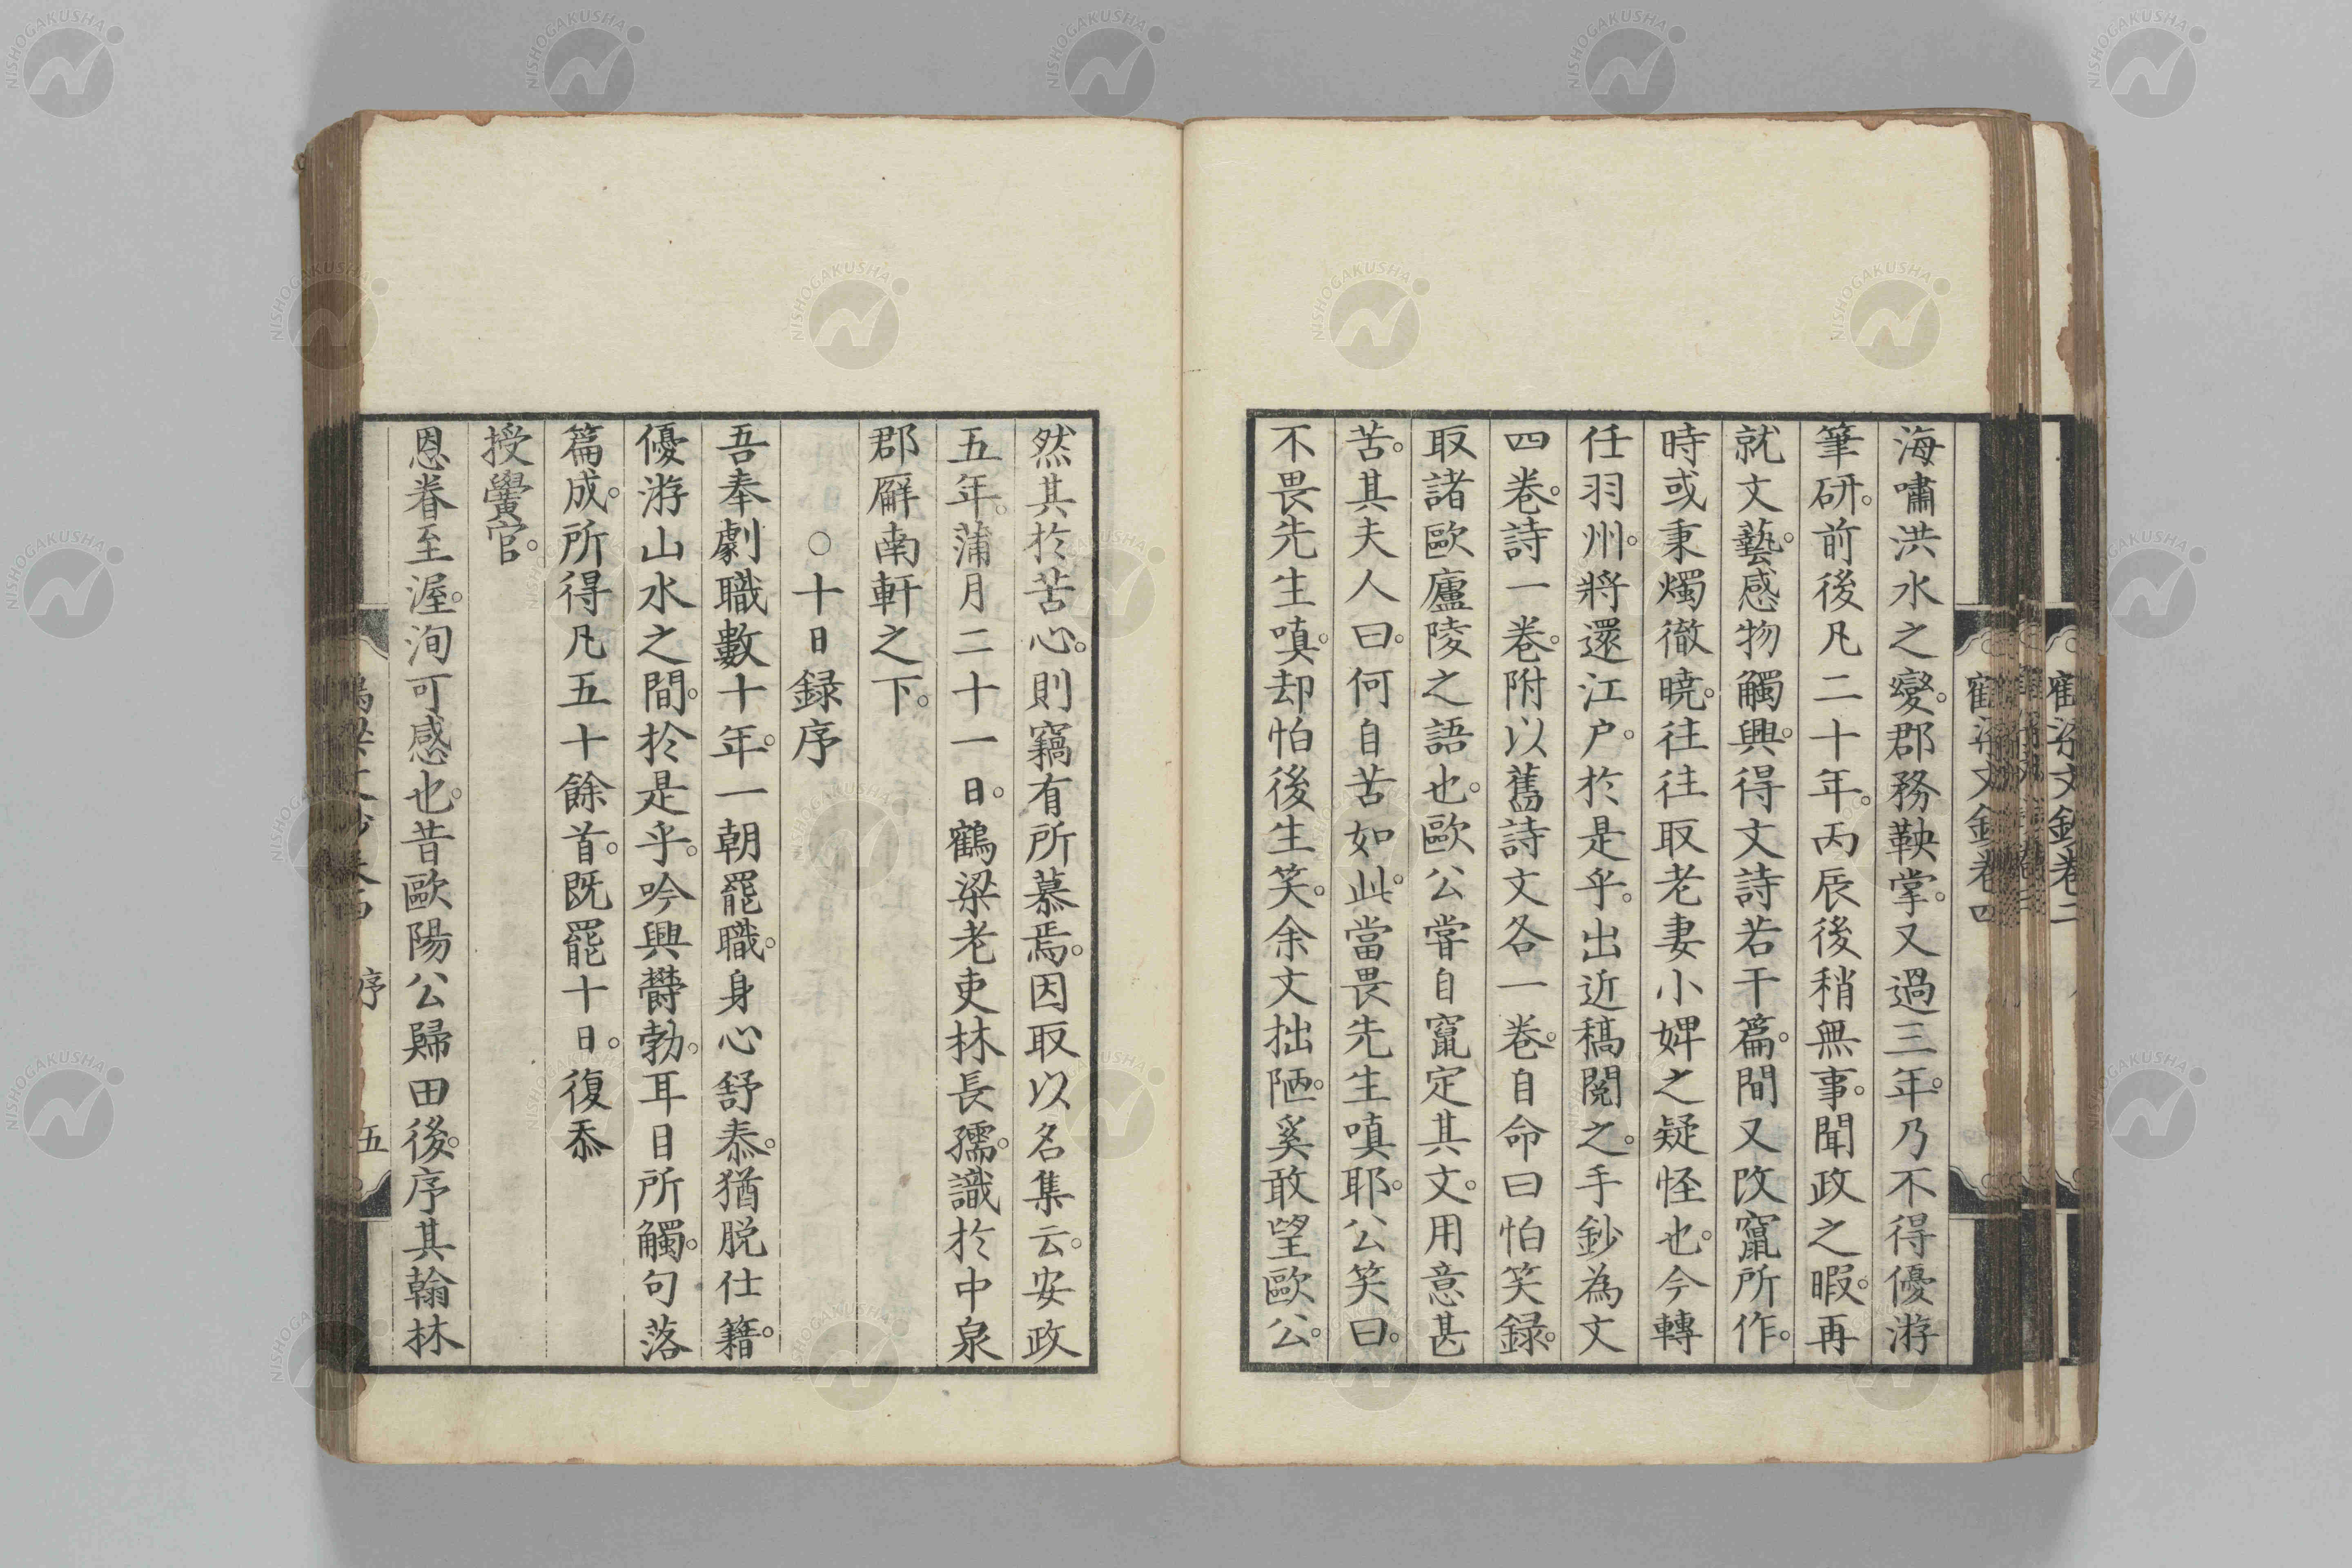 海嘯洪水之變。郡務鞅掌。又過三年。乃不得優游
筆研。前後凡二十年。丙辰後稍無事。聞政之暇。再
就文藝。感物觸興。得文詩若干篇。間又改竄所作。
時或秉燭徹曉。往往取老妻小婢之疑怪也。今轉
任羽州。將還江户。於是乎。出近稿閱之。手鈔為文
四卷。詩一卷。附以舊詩文各一卷。自命曰怕笑録。
取諸歐廬陵之語也。歐公嘗自竄定其文。用意甚
苦。其夫人曰。何自苦如此。當畏先生嗔耶。公笑曰。
不畏先生嗔。却怕後生笑。余文拙陋。奚敢望歐公。
然其於苦心。則竊有所慕焉。因取以名集云。安政
五年。蒲月二十一日。鶴梁老吏林長孺。識於中泉
郡廨南軒之下。
○十日録序
吾奉劇職數十年。一朝罷職。身心舒泰。猶脱仕籍。
優游山水之間。於是乎。吟興欝勃。耳目所觸。句落
篇成。所得凡五十餘首。既罷十日。復忝
授黌官。
恩眷至渥。洵可感也。昔歐陽公歸田後。序其翰林
鶴梁文鈔卷四
序
五
鶴梁文鈔卷四
鶴梁文鈔卷二
NISHOGAKUSHA